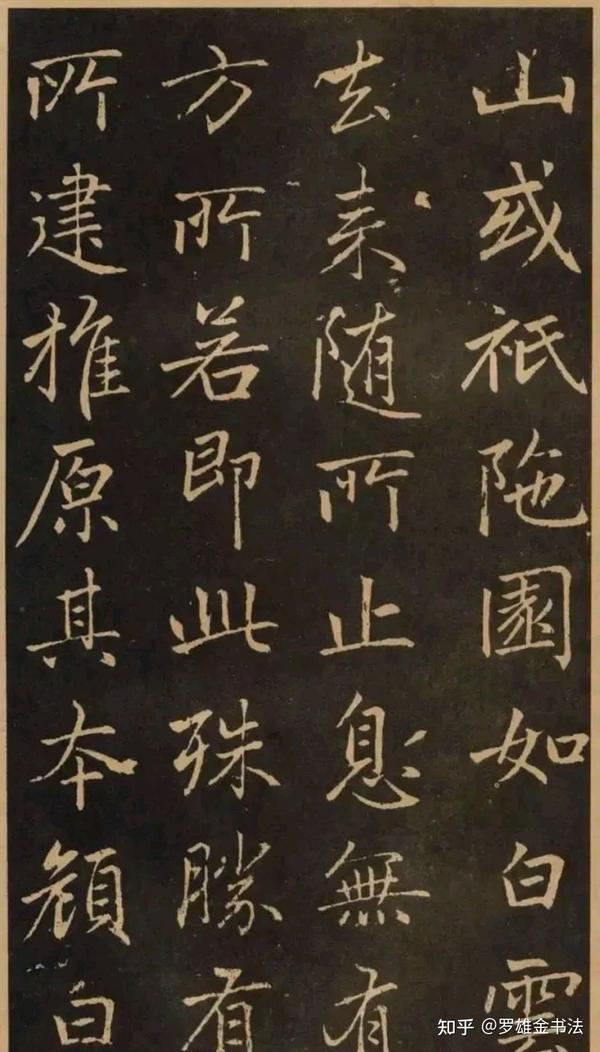 山或祇陁園如白雲
去来随所止息無有
方所若即此殊勝有
所建推原其本願白
知乎 @罗雄金书法